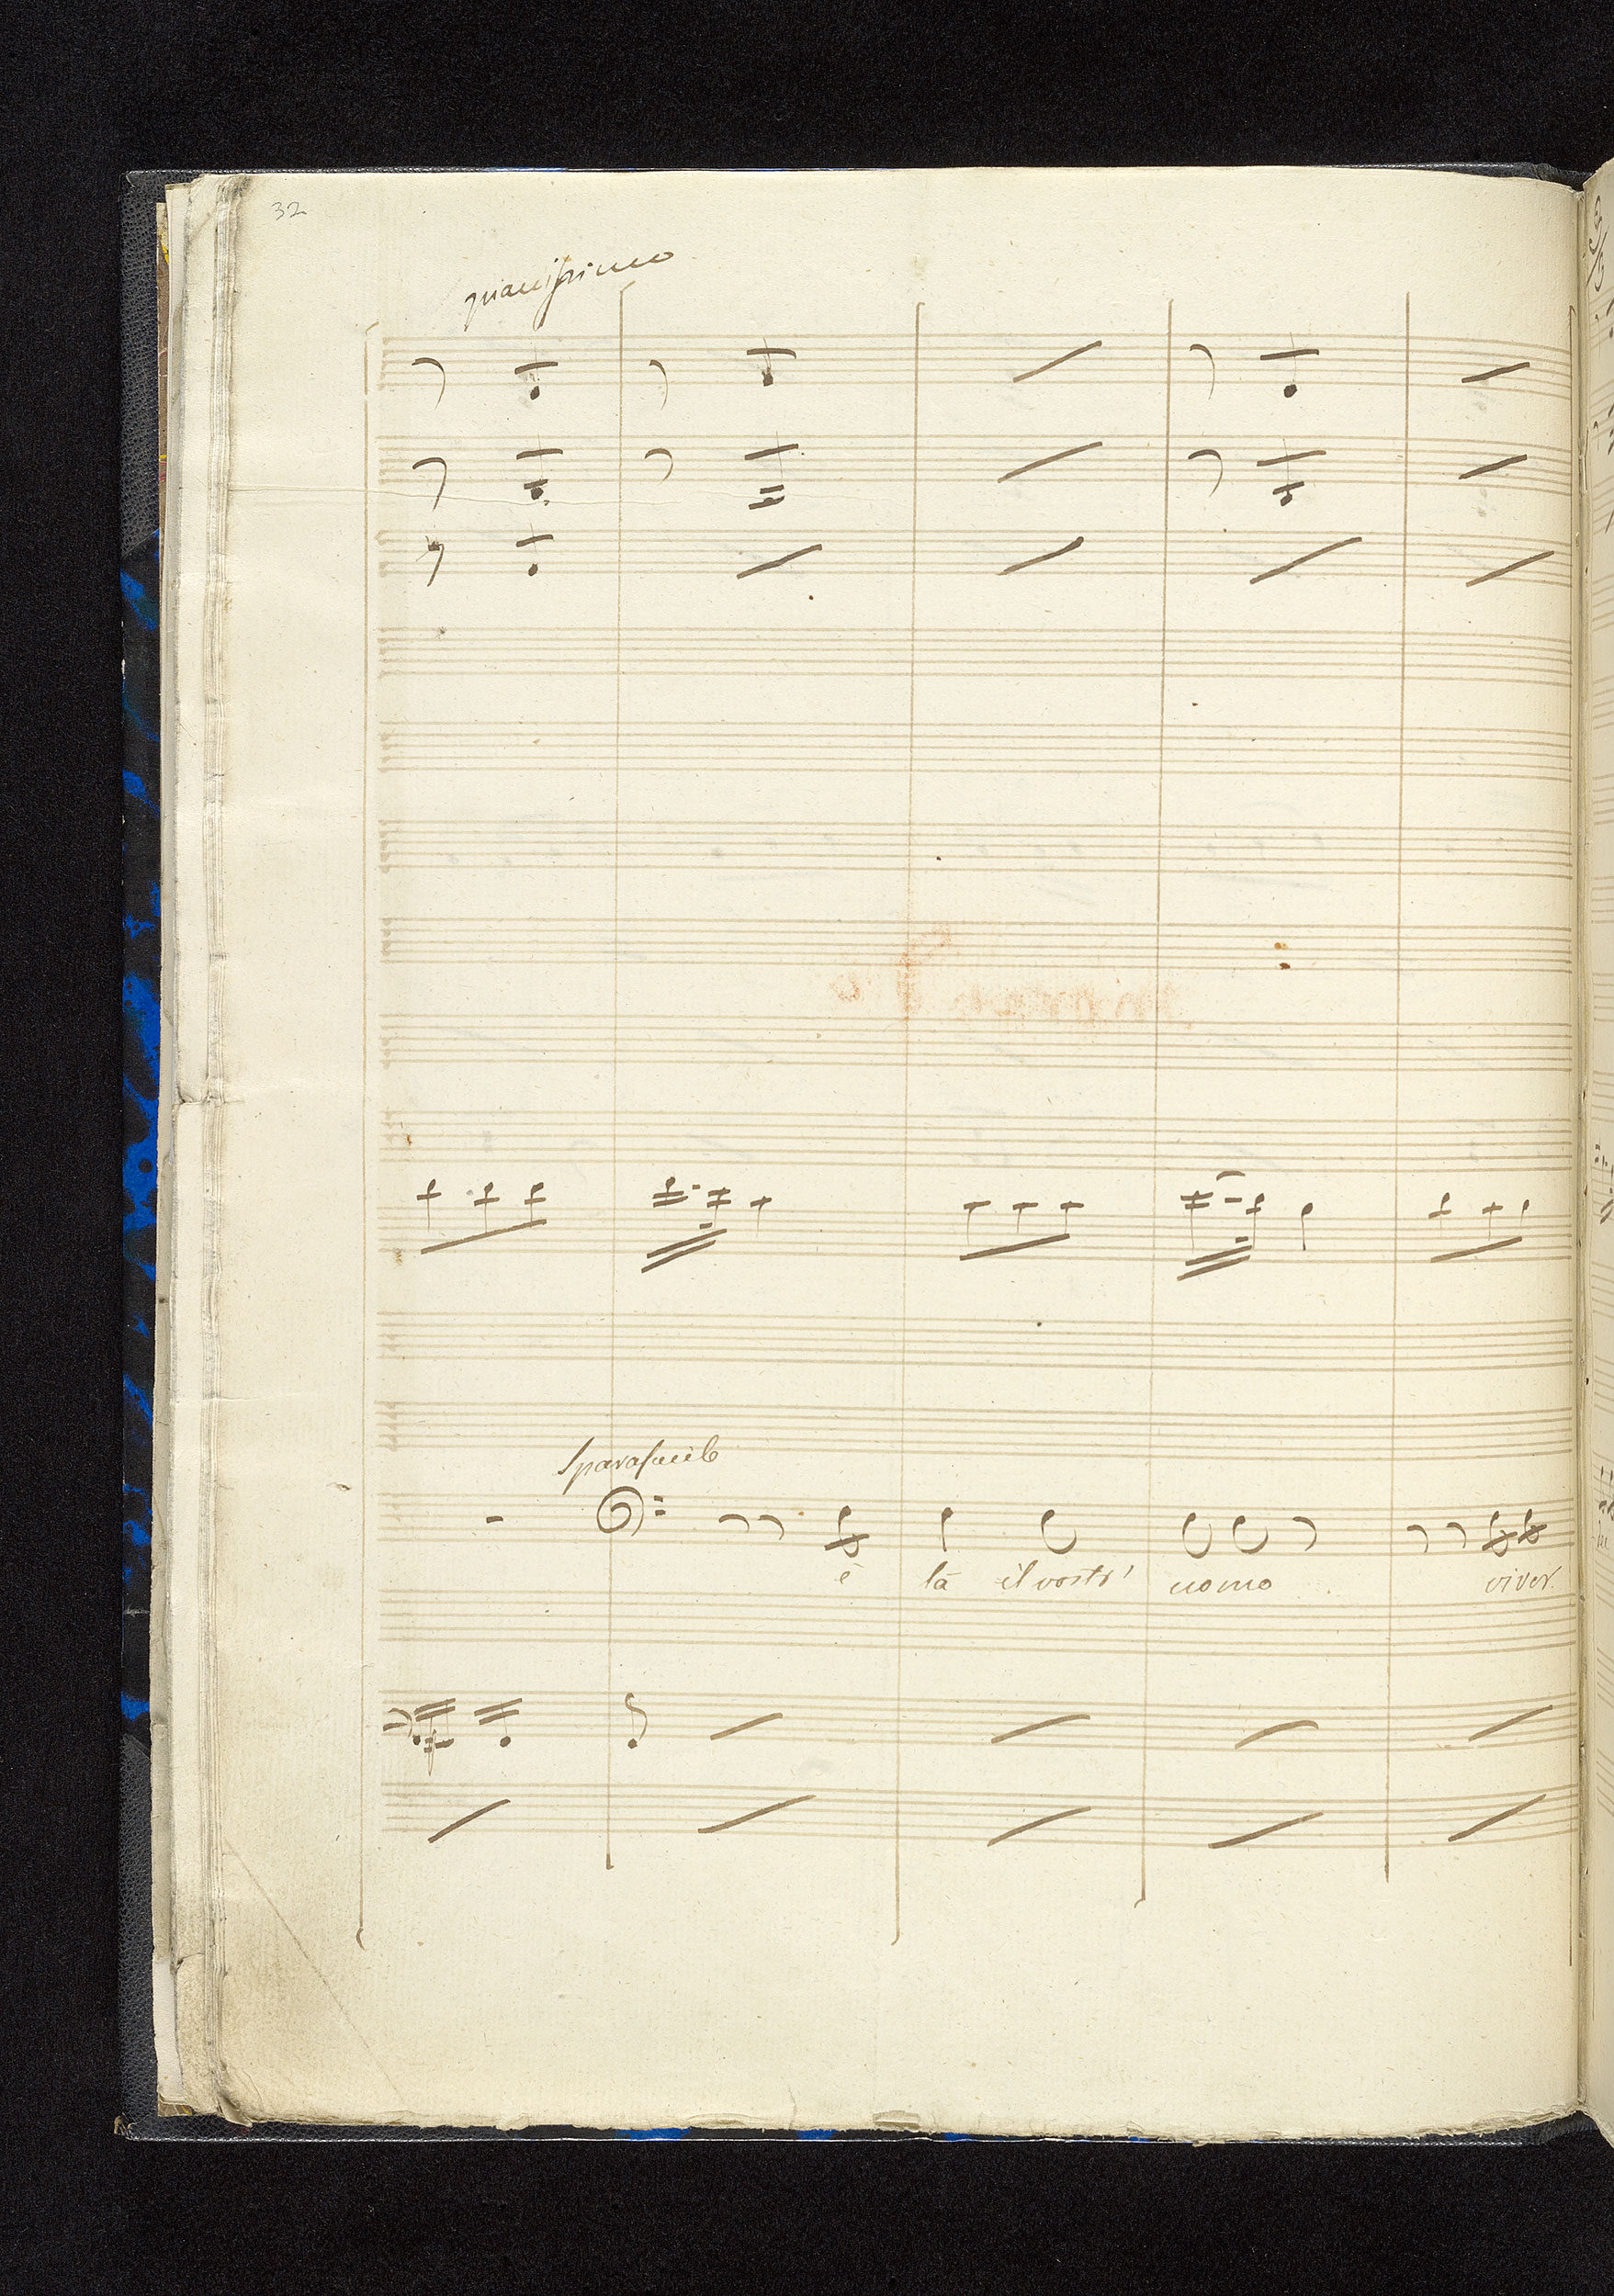 32
pianissimo
Sparafucile
è là il vostr' uomo viver